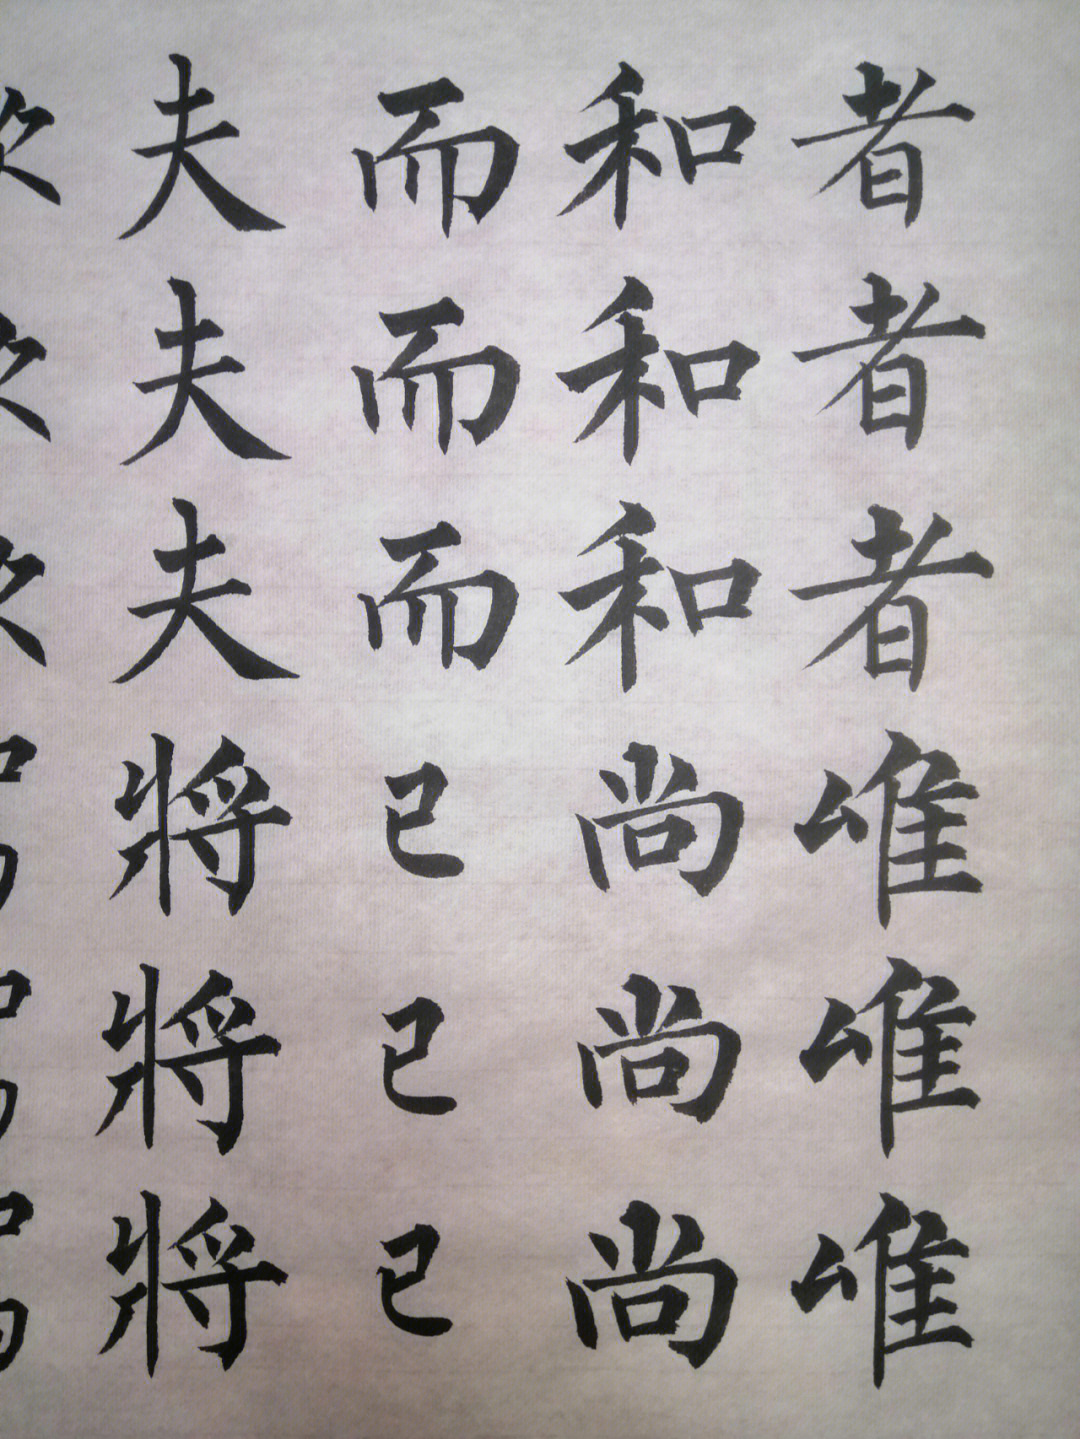 者者者唯唯唯
和和和尚尚尚
而而而已已已
夫夫夫將將將